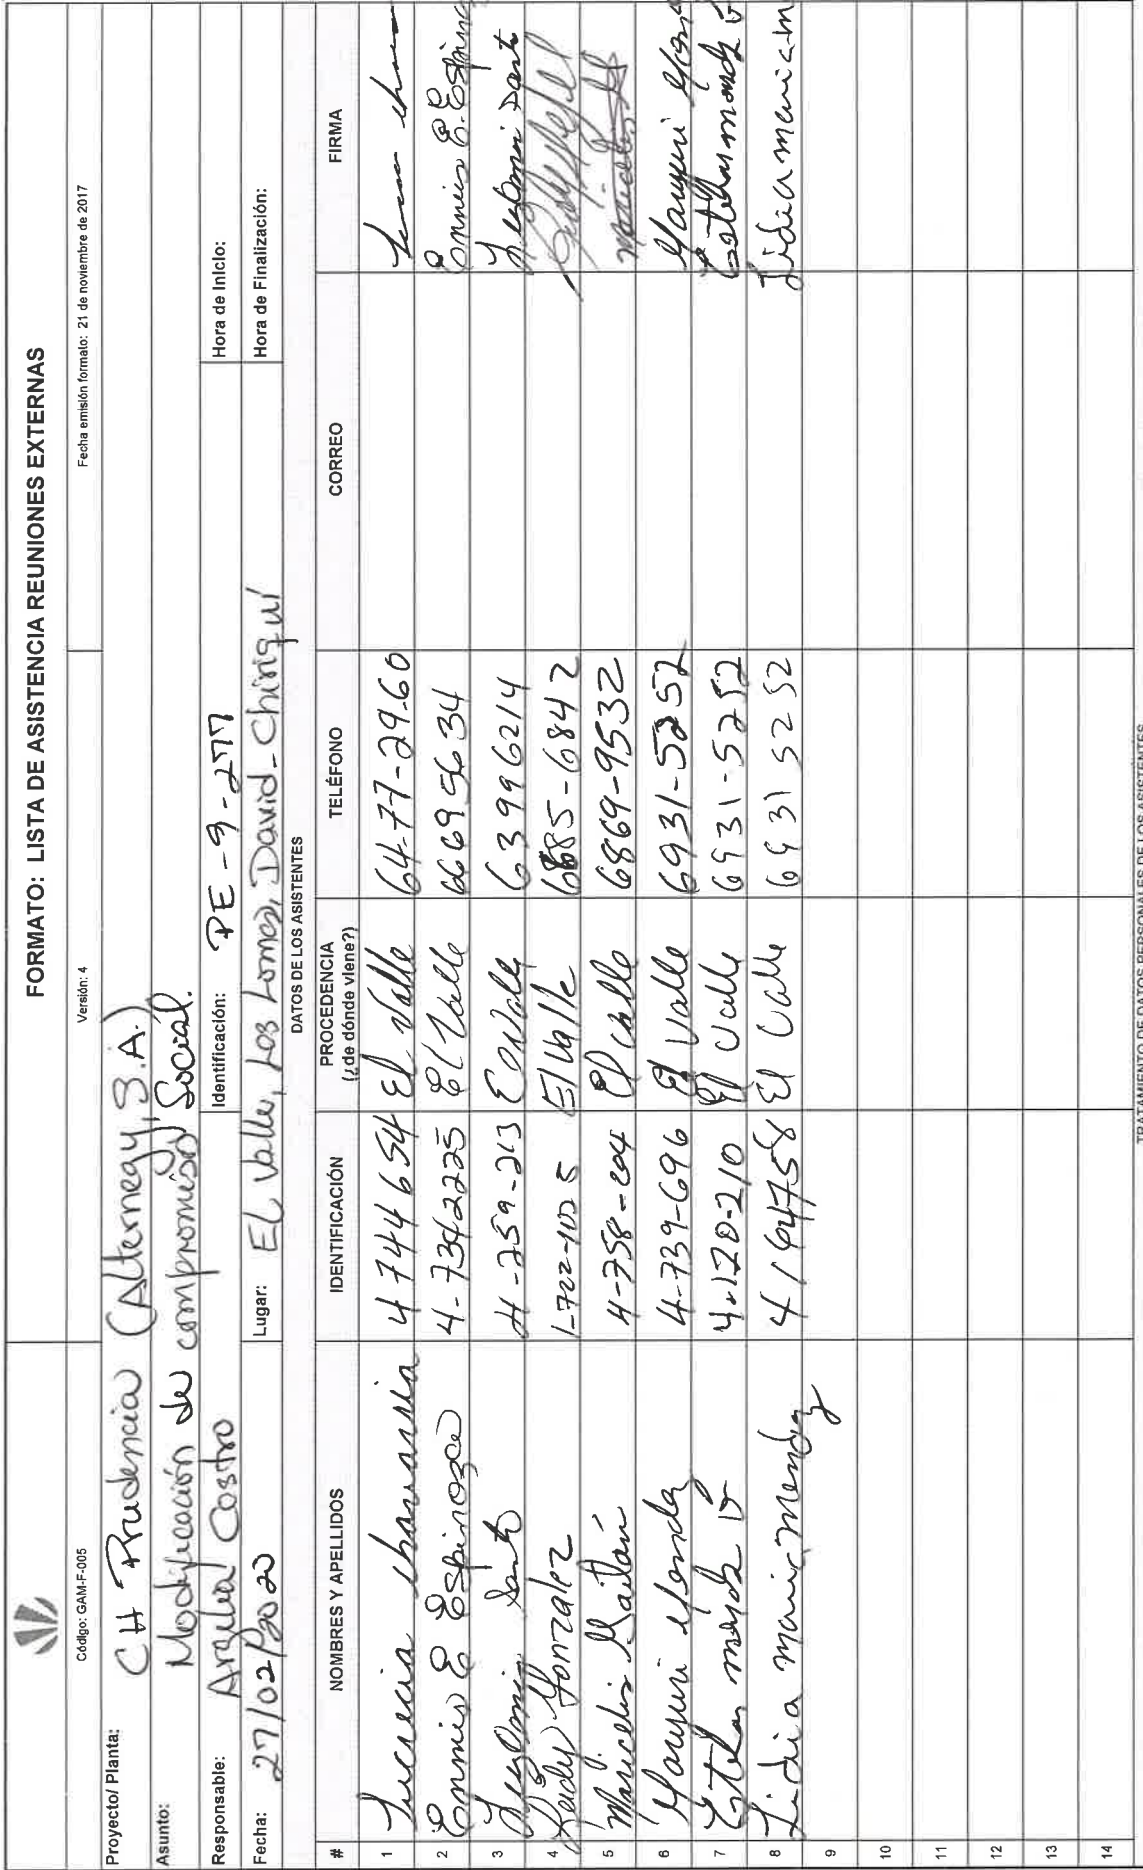 FORMATO: LISTA DE ASISTENCIA REUNIONES EXTERNAS
Código: GAM-F-005 Versión: 4 Fecha emisión formato: 21 de noviembre de 2017
Proyecto/ Planta: CH Prudencia (Alternegy, S.A.)
Asunto: Modificación de compromiso Social.
Responsable: Argelia Castro Identificación: PE-9-277 Hora de Inicio:
Fecha: 27/02/2020 Lugar: El Valle, Los Lomas, David-Chiriquí Hora de Finalización:
DATOS DE LOS ASISTENTES
# NOMBRES Y APELLIDOS IDENTIFICACIÓN PROCEDENCIA (¿de dónde viene?) TELÉFONO CORREO FIRMA
1 Lucrecia 4 744 654 El Valle 64-77-29-60
2 Ennis E Espinoza 4-734-2225 El Valle 66695634 Ennis E. Espino
3 4-259-213 El Valle 63996214
4 Keidy Gonzalez El Valle 6685-6842
5 Maricelis Gaitán 4-758-204 El Valle 6869-9532
6 Yauguri 4-739-696 El Valle 6931-5252 Yauguri
7 4-120-210 El Valle 6931-5252
8 Lidia maria Mendez El Valle 6931 5252 Lidia maria m
9
10
11
12
13
14
TRATAMIENTO DE DATOS PERSONALES DE LOS ASISTENTES